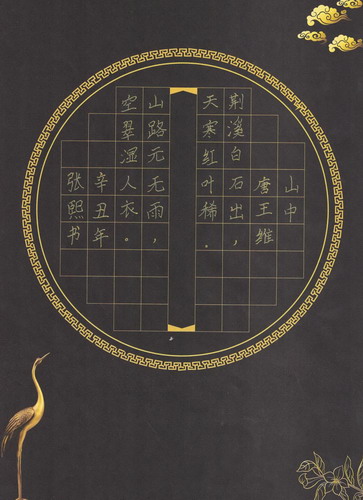 山中
唐王维
荆溪白石出，
天寒红叶稀。
山路元无雨，
空翠湿人衣。
辛丑年
张熙书